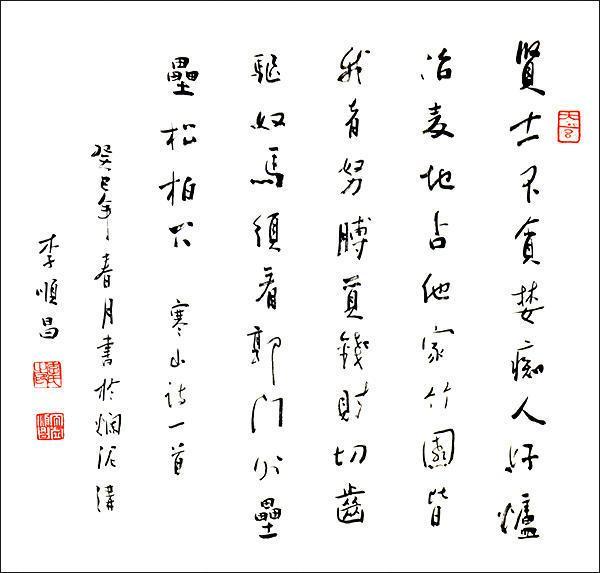 賢士不貪婪痴人好爐
冶麦地占他家竹園皆
我者努膊覓錢財切齒
驅奴馬須看郭門外壘
壘松柏下 寒山诗一首
癸巳年春月書於爛泥溝
李順昌